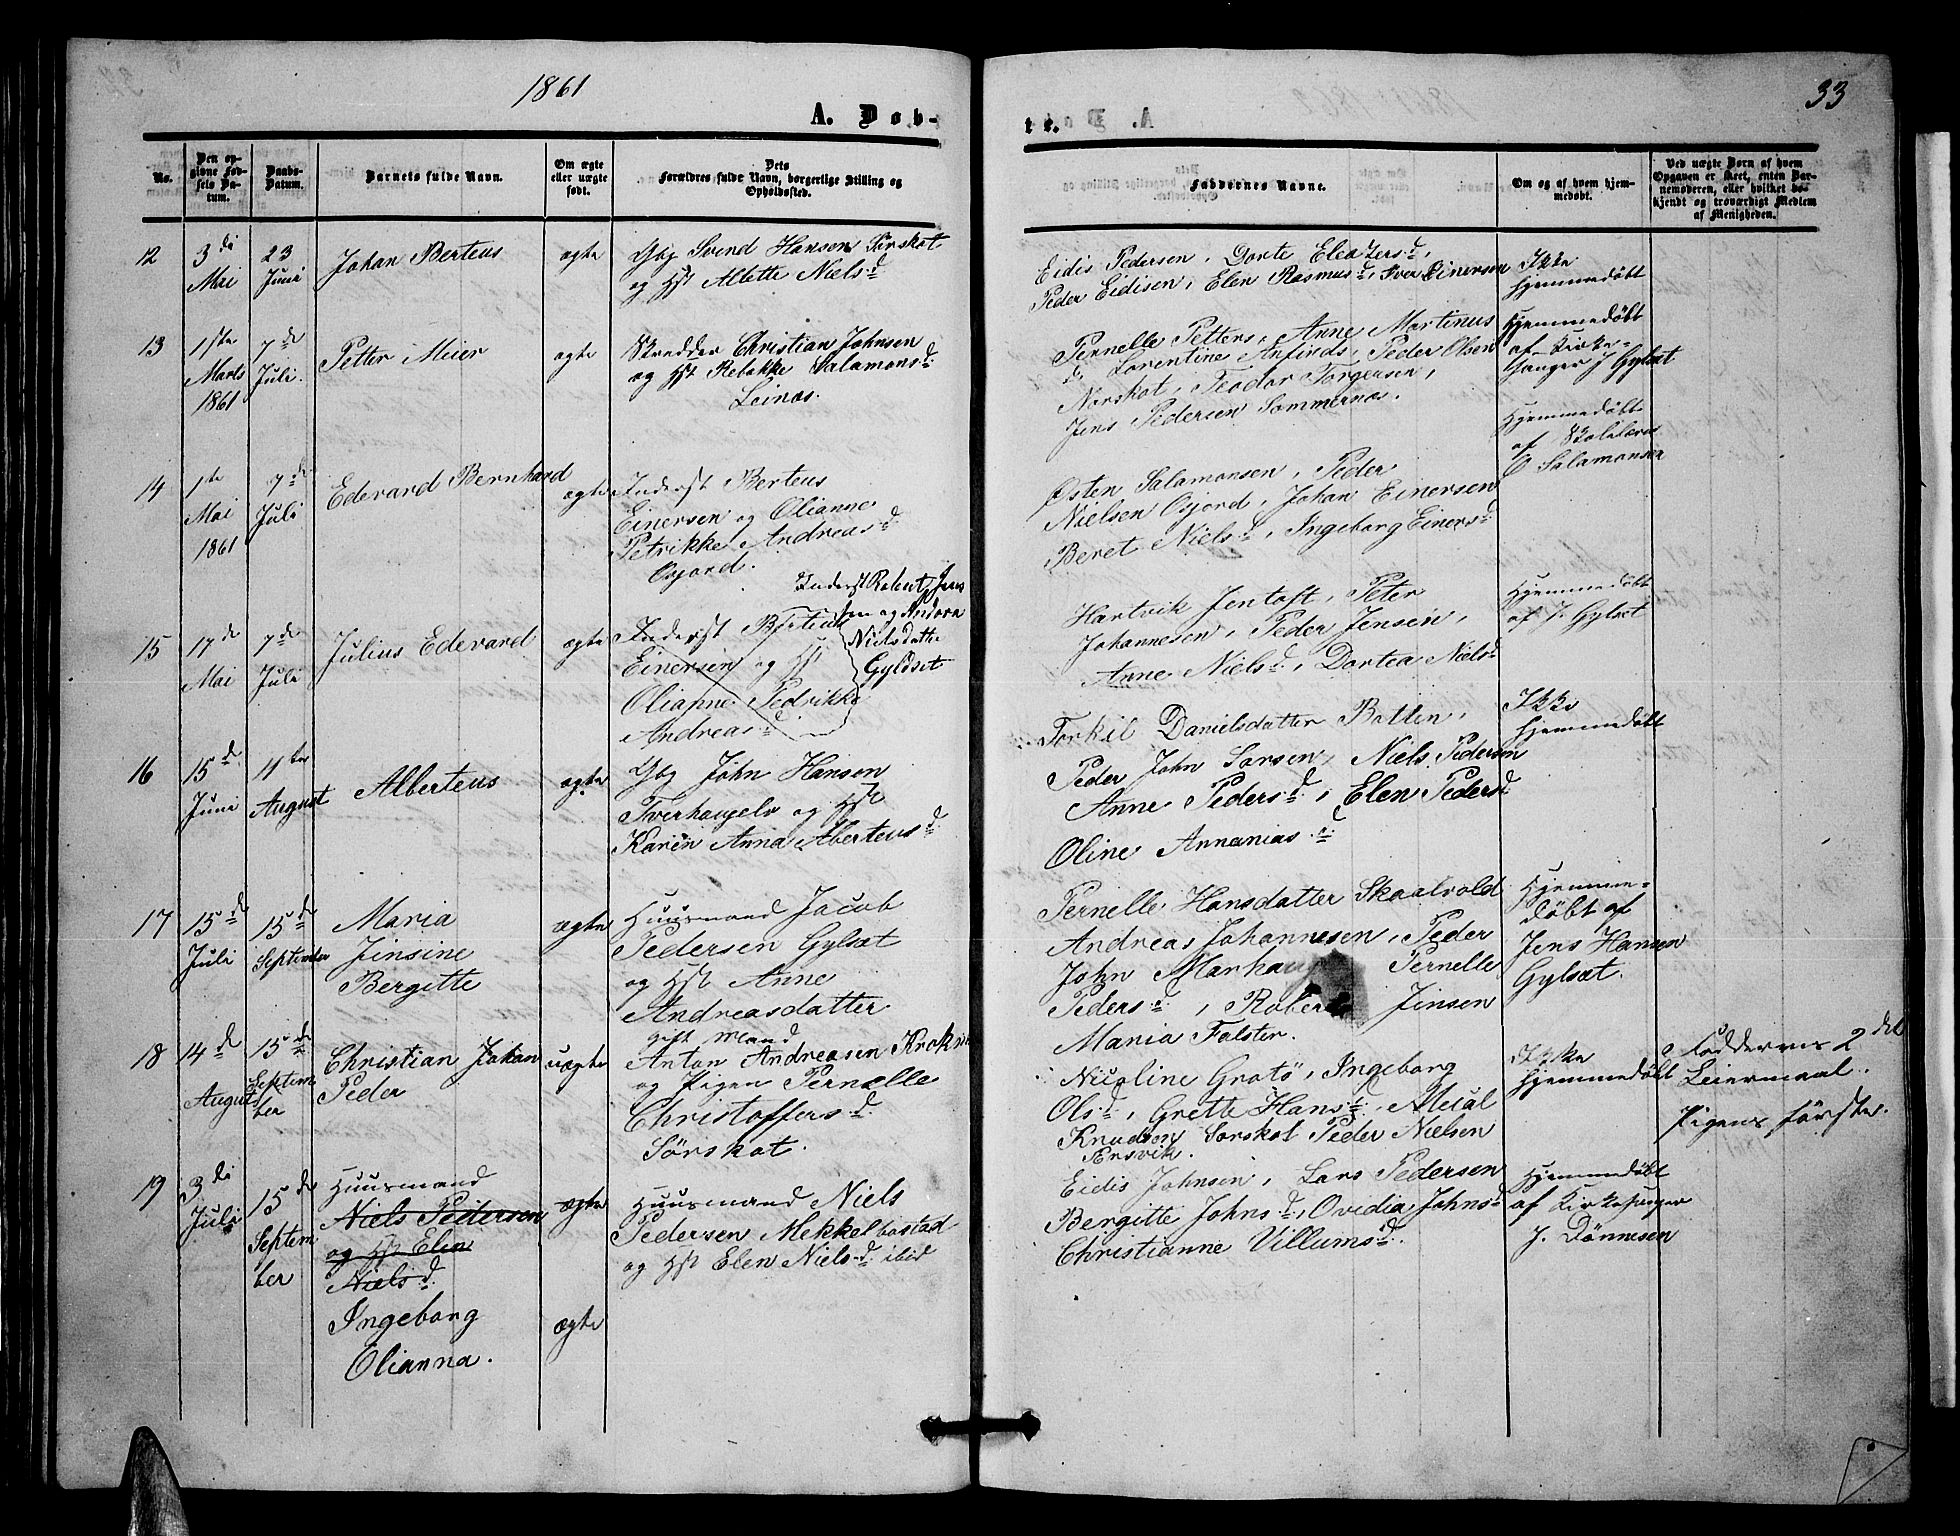 1861
33
A. Dob-
te.
No.
Den op-
givne Fød-
sels Da-
tum.
Daabs-
Datum.
Barnets fulde Navn.
Om ægte
eller uægte
født.
Dets
Forældres fulde Navn, borgerlige Stilling og
Opholdssted.
Faddernes Navne.
Om og af hvem hjem-
medøbt.
Ved uægte Børn af hvem
Opgaven er skeet, enten Bar-
nemoderen, eller hvilket be-
kjendt og troværdigt Medlem
af Menigheden.
12
3di
Mai
23
Juni
Johan Berteus
ægte
Gbg Svend Hansen Sørskot
og Hst Albette Nielsd.
Eidis Pedersen, Dorte Eleazersd.,
Peder Eidisen, Elen Rasmusd., Iver Einersen
Ikke
hjemmedøbt
13
1ste
Marts
1861
7de
Juli.
Petter Meier
ægte
Skredder Christian Johnsen
og Hst Rebekke Salamonsd.
Leinæs.
Pernelle Petters, Anne Martinus
d. Lorentine Anfinds, Peder Olsen
Nørskot, Teodor Torgersen,
Jens Pedersen Sommernæs.
Hjemmedøbt
af Kirke-
sanger J Gylset
14
1te
Mai
1861
7de
Juli
Edevard Bernhard
ægte
Inderst Berteus
Einersen og Olianne
Petrikke Andreasd.
Osjord.
Østen Salamonsen, Peder
Nielsen Osjord, Johan Einersen
Beret Nielsd., Ingeborg Einersd.
Hjemmedøbt
af Skolelærer
O Salamonsen
15
17de
Mai
7de
Juli
Julius Edevard
ægte
Inderst Berteus
Einersen og Hst
Olianne Pedrikke
Andreasd.
Inderst Robert Jens
sen og Andora
Nielsdatter
Gyldset
Hartvik Jentoft, Peter
Johannesen, Peder Jensen,
Anne Nielsd., Dortea Nielsd.
Hjemmedøbt
af J. Gylset
16
15d
Juni
11te
August
Alberteus
ægte
Gbg John Hansen
Tverhaugelv og Hst
Karen Anna Aberteusd.
Torkel Danielsdatter Botten,
Peder John Sørsen, Niels Pedersen
Anne Pedersd., Elen Pedersd.
Oline Annaniasd.
Ikke
hjemmedøbt
17
15d
Juli
15de
September
Maria
Jinsine
Bergitte
ægte
Huusmand Jacob
Pedersen Gylset
og Hst Anne
Andreasdatter
Pernelle Hansdatter Skaalvold
Andreas Johannesen, Peder
John Markaug Pernelle
Pedersd., Robert Jinsen
Maria Falster.
Hjemme-
døbt af
Jens Hansen
Gylset.
18
14d
August
15de
Septem
ber
Christian Johan
Peder
uægte
gift Mand
Anton Andreasen Krokvi
og Pigen Pernelle
Christoffersd.
Sørskot.
Nicoline Grotø, Ingeborg
Olsd., Grette Hansd., Mical
Knudsen Sørskot Peder Nielsen
Ærsvik.
Ikke
hjemmedøbt
Faddernes 2det
Leiermaal.
Pigens første.
19
3di
Juli
15de
Septem
ber
Huusmand
Niels Pedersen
og Hst Elen
Nielsd.
Ingeborg
Olianna.
ægte
ægte
Huusmand Niels
Pedersen Mekkelbostad
og Hst Elen Nielsd. ibid
Eidis Johnsen, Lars Pedersen
Bergitte Johnsd., Ovidia Johnsd.
Christianne Villumsd.
Hjemmedøbt
af Kirkesanger
J. Dönnesen